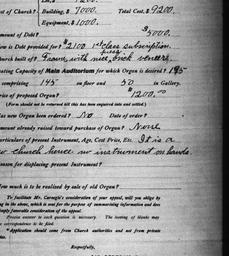 1200
st of Church? { Building, $ 7000. Total Cost, $9200.
Equipment, $1000.
Amount of Debt? $5000.
w is Debt provided for? $2100 1st class subscription.
Church built of? Frame, with nice brick veneer.
ating Capacity of Main Auditorium for which Organ is desired? 195
comprising 145 on floor and 50 in Gallery.
rice of proposed Organ? $1200.00
(Form should not be returned till this has been enquired into and settled.)
as new Organ been ordered? No Date of order?
mount already raised toward purchase of Organ? None
articulars of present Instrument, Age, Cost Price, Etc. It is a
w church hence no instrument on hands
eason for displacing present Instrument?
ow much is to be realized by sale of old Organ?
To facilitate Mr. Carnegie's consideration of your appeal, will you oblige by
ng in the above, which is sent for the purpose of communicating information and does
imply favorable consideration of the appeal.
Precise answer to each question is necessary. The leaving of blanks may
correspondence to be filed.
Application should come from Church authorities and not from private
ies.
Respectfully,